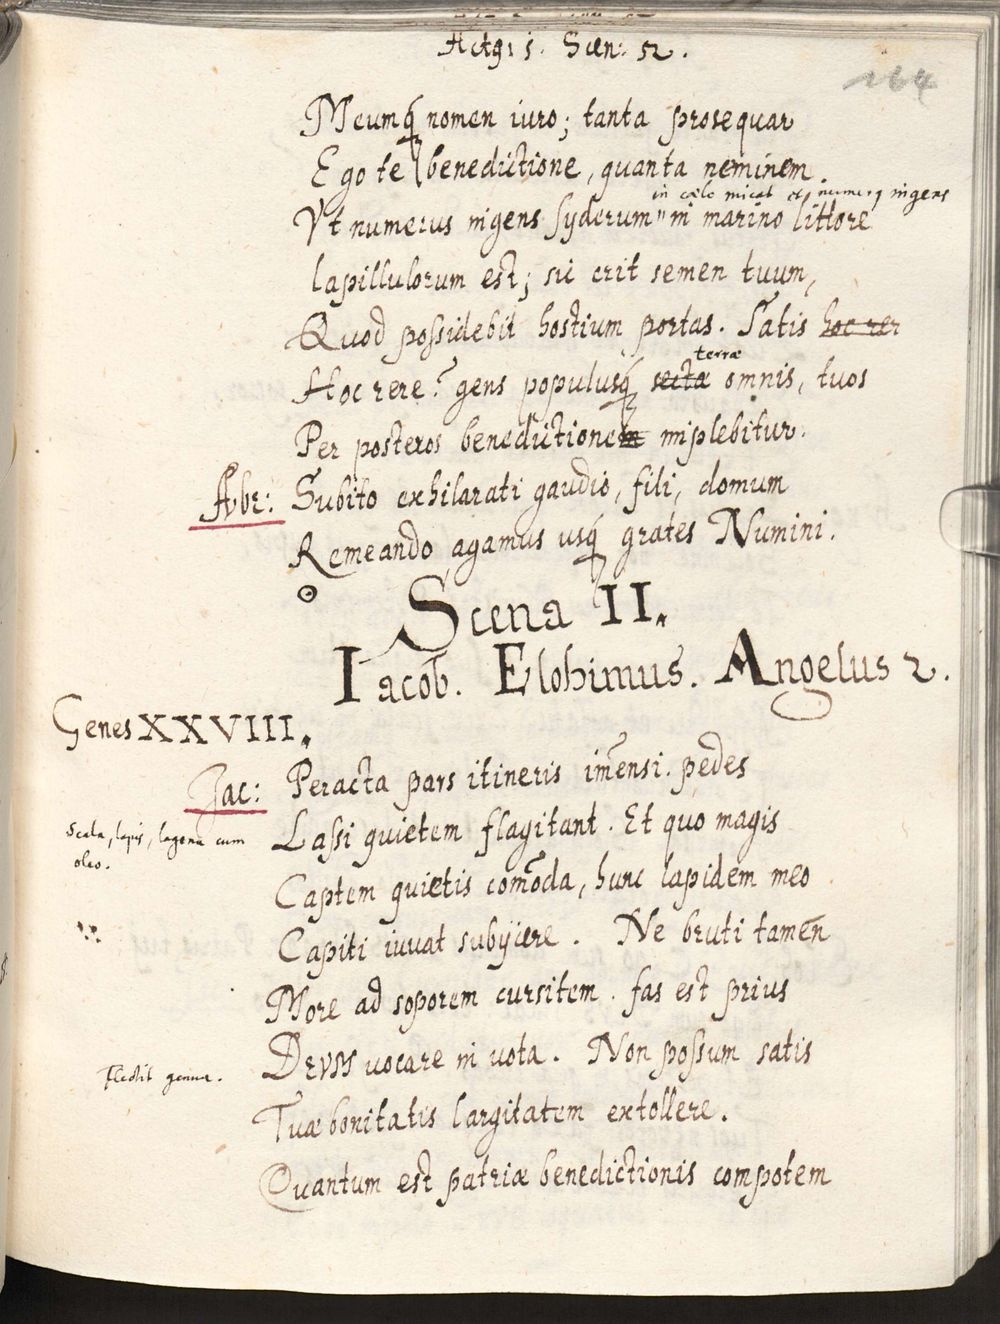 Actq; 5. Scen. 2.
164
Meumq; nomen iuro; tanta prosequar
Ego te benedictione, quanta neminem.
in cœlo micat et numerq ingens
Vt numerus ingens syderum " in marino littore
lapillulorum est; sic erit semen tuum,
Quod possidebit hostium portas. Satis hoc rer
terræ
Hoc rere? gens populusq; sectæ omnis, tuos
Per posteros benedictionem implebitur.
Abr: Subito exhilarati gaudio, fili, domum
Remeando, agamus usq; grates Numini.
Scena II.
Iacob. Elohimus. Angelus 2.
Genes XXVIII.
Jac: Peracta pars itineris im̄ensi. pedes
Lassi quietem flagitant. Et quo magis
Scala, lapis, lagena cum
oleo.
Captem quietis com̄oda, hunc lapidem meo
Capiti iuvat subijcere. Ne bruti tamen
More ad soporem cursitem. fas est prius
Devm vocare in vota. Non possum satis
Flectit genua.
Tuæ bonitatis largitatem extollere.
Quantum est patriæ benedictionis compotem